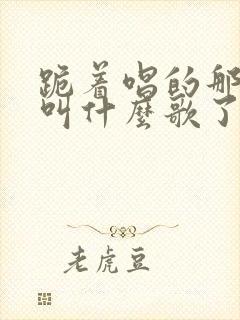 跪着唱的那
叫什麼歌了
老虎豆